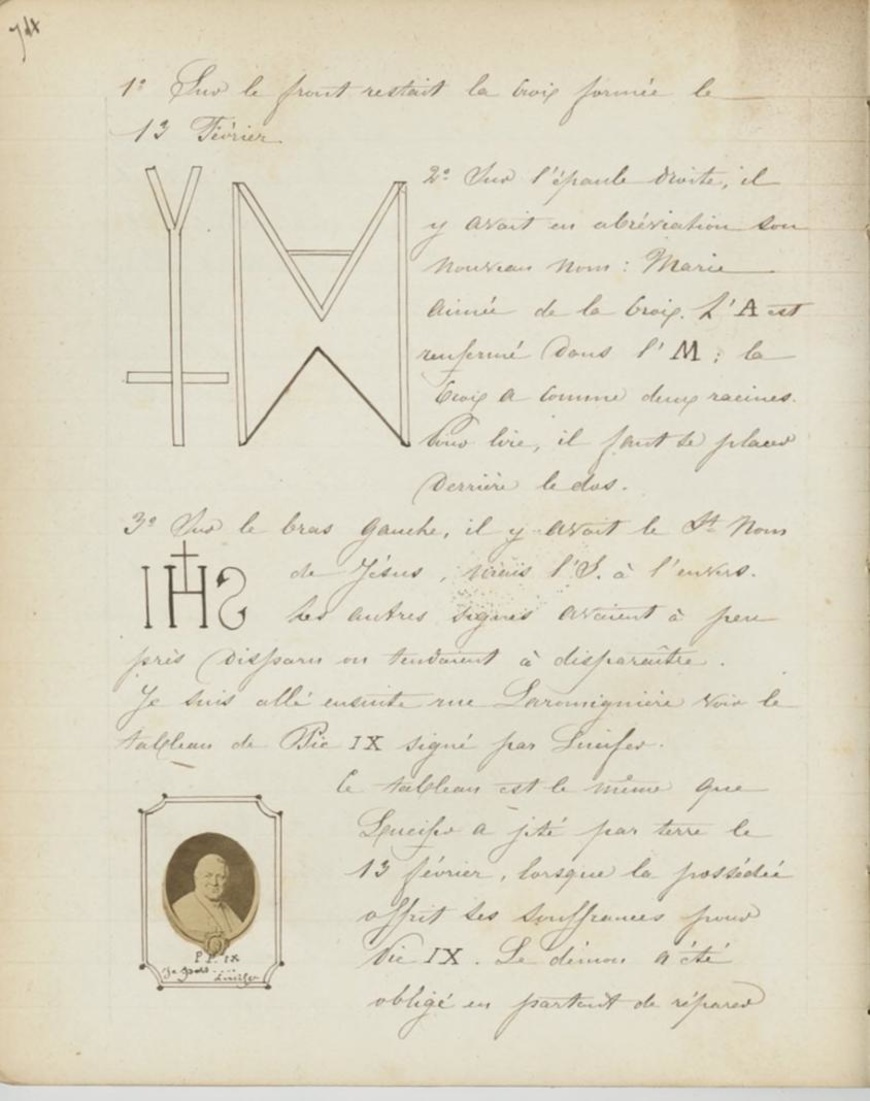 1º Sur le front restait la Croix formée le
13 Février.
2º Sur l'épaule droite, il
y avait en abréviation son
nouveau nom : Marie
aimée de la Croix. L'A est
renfermé dans l'M ; la
Croix a comme deux racines.
Pour lire, il faut se placer
derrière le dos.
3º Sur le bras gauche, il y avait le St Nom
IHS
de Jésus, mais l'S. à l'envers.
Les autres signes avaient à peu
près disparu ou tendaient à disparaître.
Je suis allé ensuite rue Laromiguière voir le
tableau de Pie IX signé par Lucifer.
Ce tableau est le même que
Lucifer a jeté par terre le
13 février, lorsque la possédée
offrit ses souffrances pour
Pie IX. Le démon a été
obligé en partant de réparer
P. P. IX
Lucifer